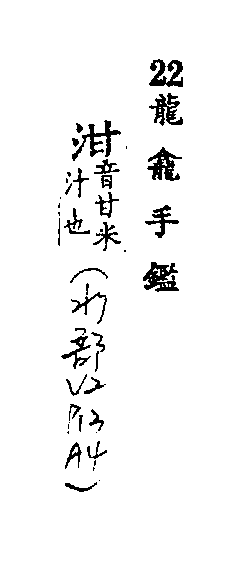 22龍龕手鑑
泔音甘米
汁也
(水部
V2
P13
A4)